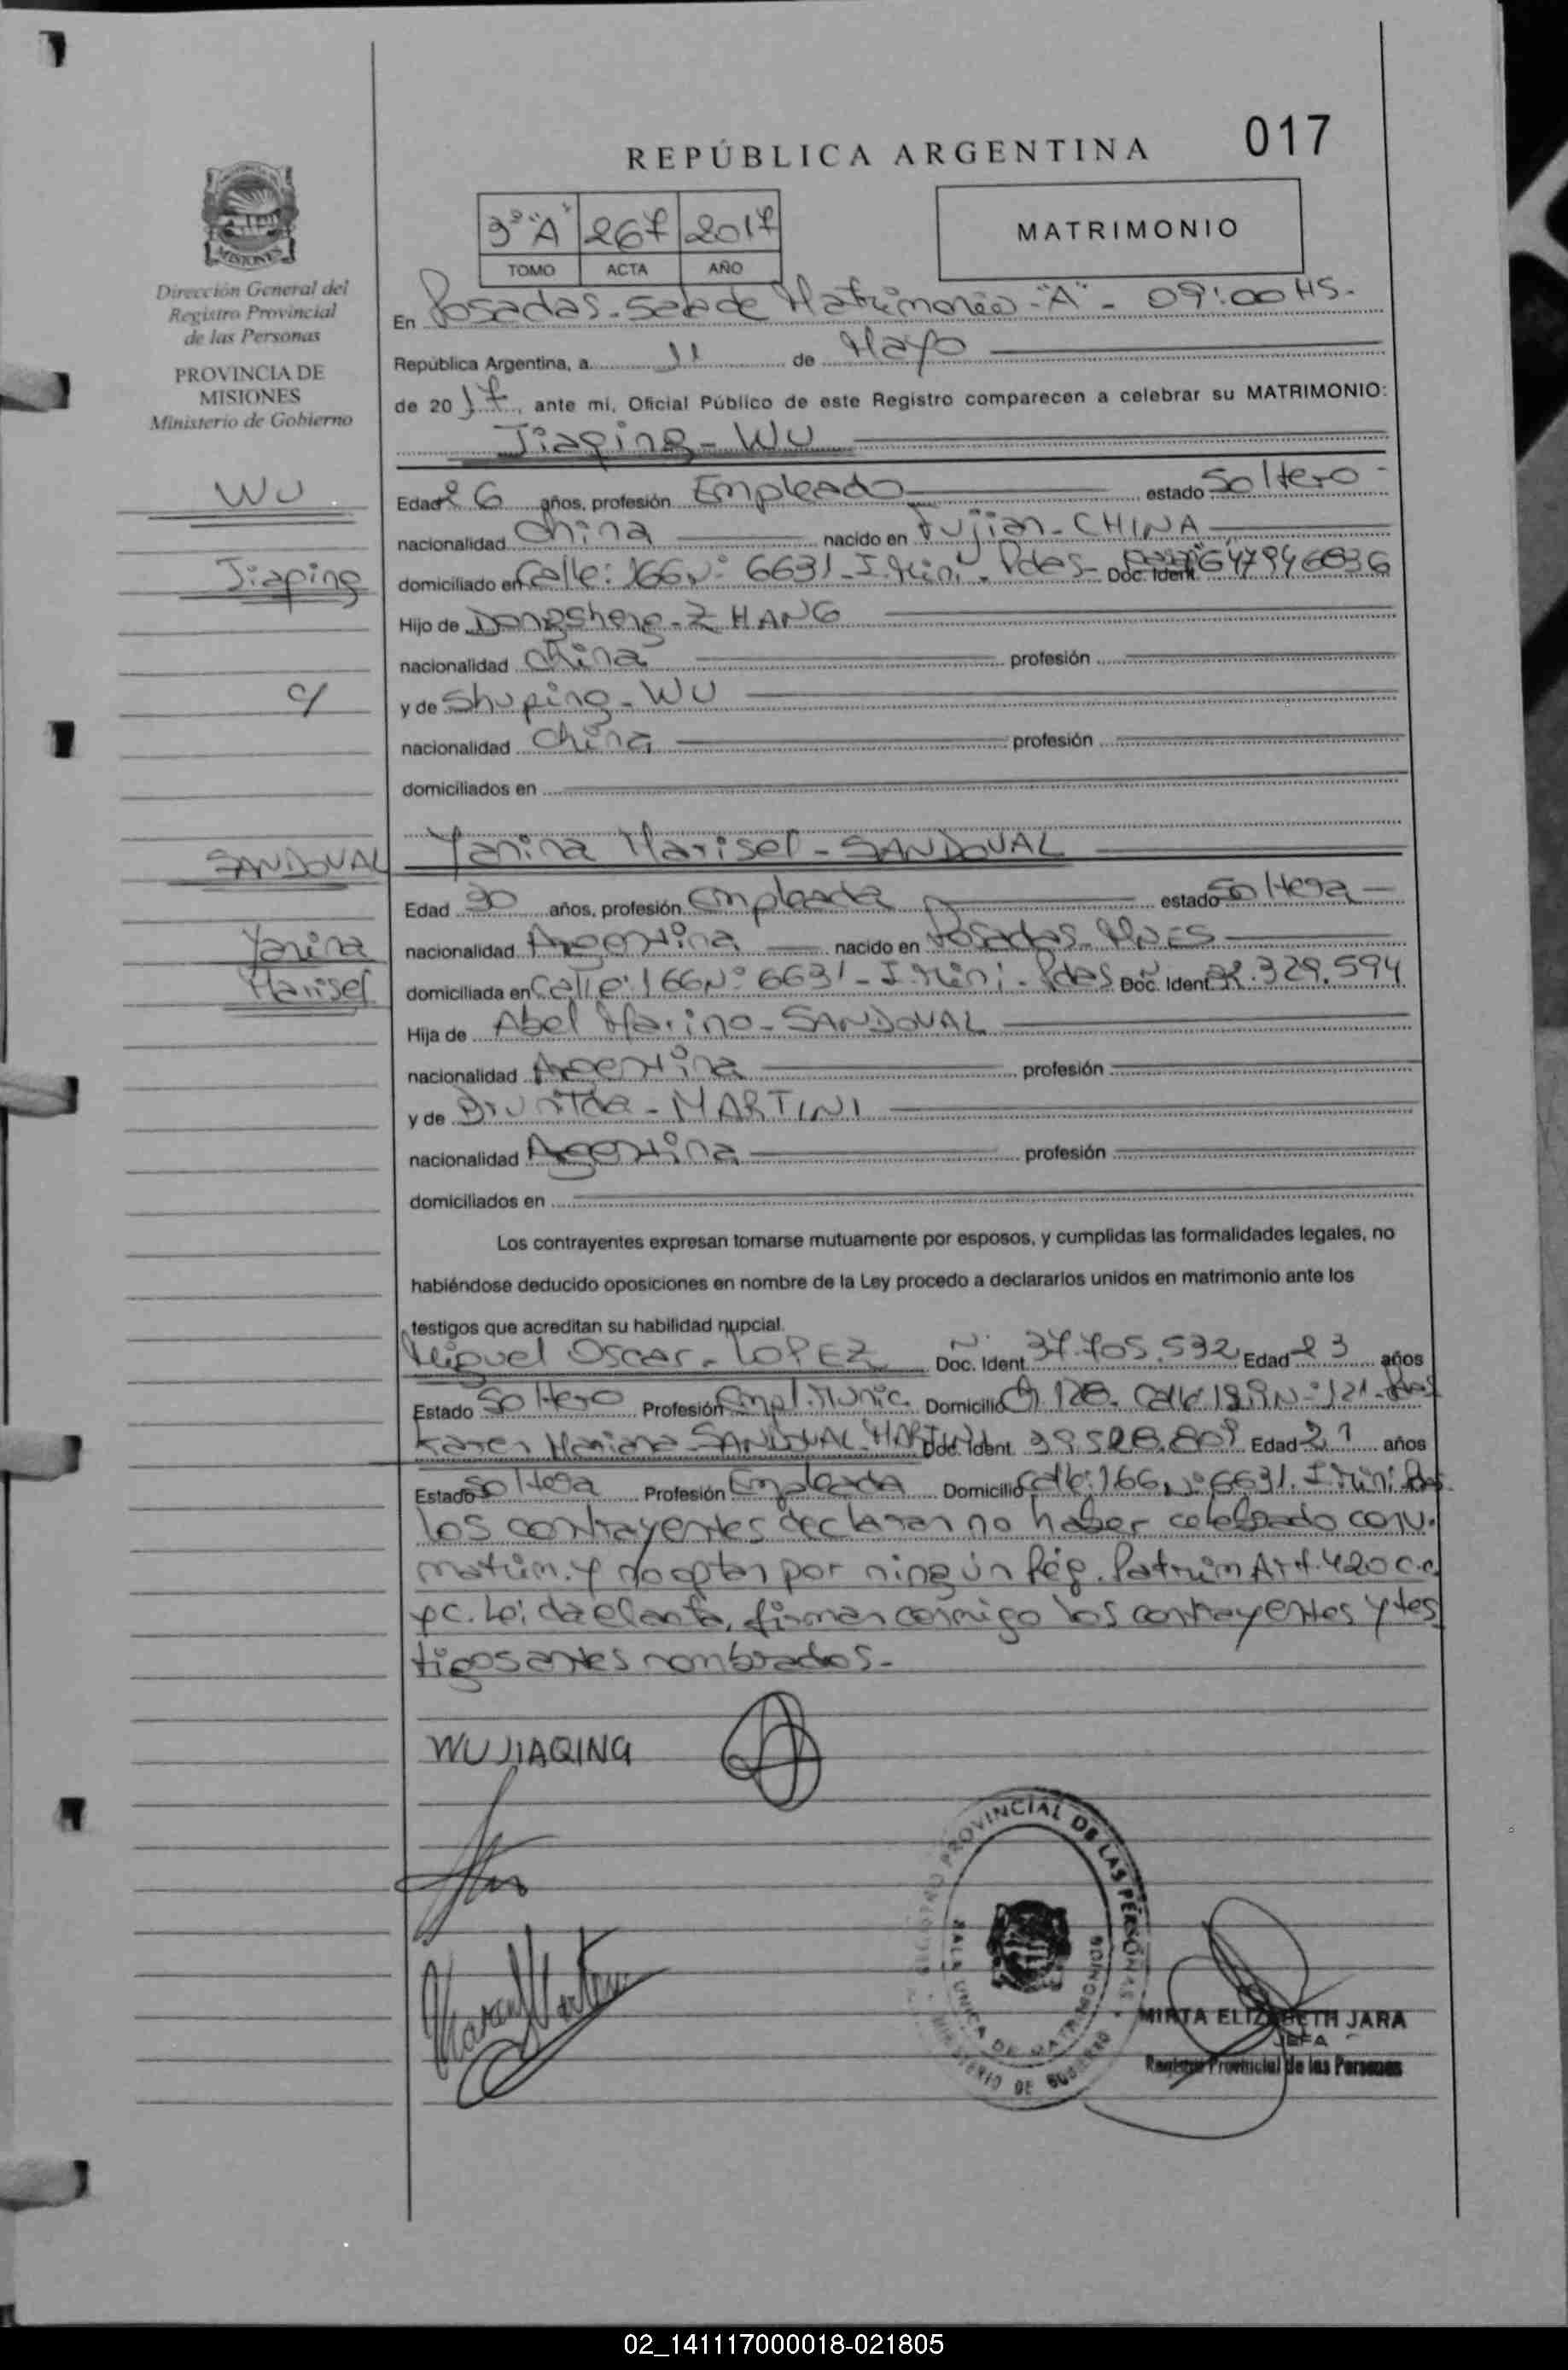 017
REPÚBLICA ARGENTINA
3º "A" 267 2017
TOMO ACTA AÑO
MATRIMONIO
MISIONES
Dirección General del
Registro Provincial
de las Personas
PROVINCIA DE
MISIONES
Ministerio de Gobierno
En Posadas - Sala de Matrimonio - "A" - 09:00 HS.
República Argentina, a 11 de Mayo
de 2017, ante mi, Oficial Público de este Registro comparecen a celebrar su MATRIMONIO:
Jiaqing - WU
WU
Jiaqing
c/
SANDOVAL
Yanina
Marisel
Edad 26 años, profesión Empleado estado Soltero
nacionalidad China nacido en Fujian - CHINA
domiciliado en Calle: 166 Nº 6631 - I. Mini - Pdas - Doc. Ident
Hijo de Dongsheng - ZHANG
nacionalidad China profesión
y de Shuping - WU
nacionalidad China profesión
domiciliados en
Yanina Marisel - SANDOVAL
Edad 30 años, profesión Empleada estado Soltera
nacionalidad Argentina nacido en Posadas - MNES
domiciliada en Calle: 166 Nº 6631 - I. Mini - Pdas Doc. Ident 32.329.594
Hija de Abel Marino - SANDOVAL
nacionalidad Argentina profesión
y de Brunilda - MARTINI
nacionalidad Argentina profesión
domiciliados en
Los contrayentes expresan tomarse mutuamente por esposos, y cumplidas las formalidades legales, no
habiéndose deducido oposiciones en nombre de la Ley procedo a declararlos unidos en matrimonio ante los
testigos que acreditan su habilidad nupcial.
Miguel Oscar - LOPEZ Doc. Ident. 37.705.532 Edad 23 años
Estado Soltero Profesión Empl. Munic. Domicilio Ch. 128. Calle
Karen Mariana - SANDOVAL MARTINI Doc. Ident. 39.528.809 Edad 21 años
Estado Soltera Profesión Empleada Domicilio Calle: 166 Nº 6631. I. Mini. Pdas
los contrayentes declaran no haber celebrado conv.
matrim. y no optan por ningún Rég. Patrim Art. 420 C.C.
y C. Leída el acta, firman conmigo los contrayentes y tes
tigos antes nombrados.-
WU JIAQING
REGISTRO PROVINCIAL DE LAS PERSONAS
SALA UNICA DE MATRIMONIOS
MINISTERIO DE GOBIERNO
MIRTA ELIZABETH JARA
JEFA
Registro Provincial de las Personas
02_141117000018-021805